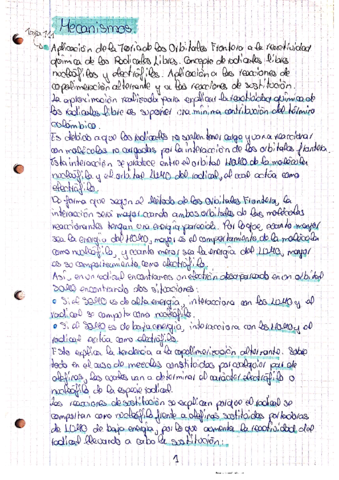 Mecanismos.
Tema 14
Aplicación de la Teoría de los Orbitales Frontera a la reactividad
química de los Radicales Libres. Concepto de radicales libres
nucleófilos y electrófilos. Aplicación a las reacciones de
copolimeración alternante y a las reacciones de sustitución.
La aproximación realizada para explicar la reactividad química de
los radicales libres es suponer una mínima contribución del término
coulómbico.
Es debido a que los radicales no suelen tener carga y van a reaccionar
con moléculas no cargadas por la interacción de los orbitales frontera.
Esta interacción se produce entre el orbital HOMO de la molécula
nucleófila y el orbital LUMO del radical, el cual actúa como
electrófilo.
De forma que según el Método de los Orbitales Frontera, la
interacción será mayor cuando ambos orbitales de las moléculas
reaccionantes tengan una energía parecida. Por lo que, cuanto mayor
sea la energía del HOMO, mayor es el comportamiento de la molécula
como nucleófilo, y cuanto menor sea la energía del LUMO, mayor
es su comportamiento como electrófilo.
Así, en un radical encontramos un electrón desapareado en un orbital
SOMO encontrando dos situaciones:
• Si el SOMO es de alta energía, interacciona con los LUMO y el
radical se comporta como nucleófilo.
• Si el SOMO es de baja energía, interacciona con los HOMO y el
radical actúa como electrófilo.
Esto explica la tendencia a la copolimerización alternante. Sobre
todo en el caso de mezclas constituidas por cualquier par de
olefinas, las cuales van a determinar el carácter electrófilo o
nucleófilo de la especie radical.
Las reacciones de sustitución se explican porque el radical se
comportan como nucleófilo frente a olefinas sustituidas portadoras
de LUMO de baja energía, por lo que aumenta la reactividad del
radical llevando a cabo la sustitución.
1